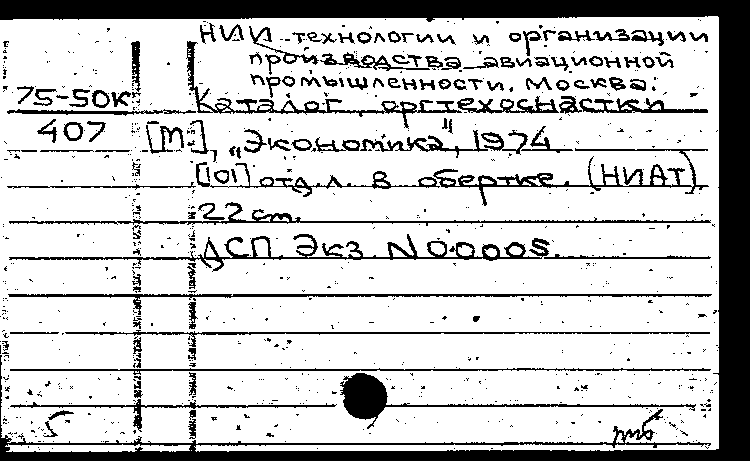 НИИ технологии и организации
производства авиационной
промышленности. Москва.
75-50к Каталог оргтехоснастки
407 [М.], „Экономика", 1974
[101] отд. л. в обертке. (НИАТ).
22 см.
ДСП. Экз. N 00005.